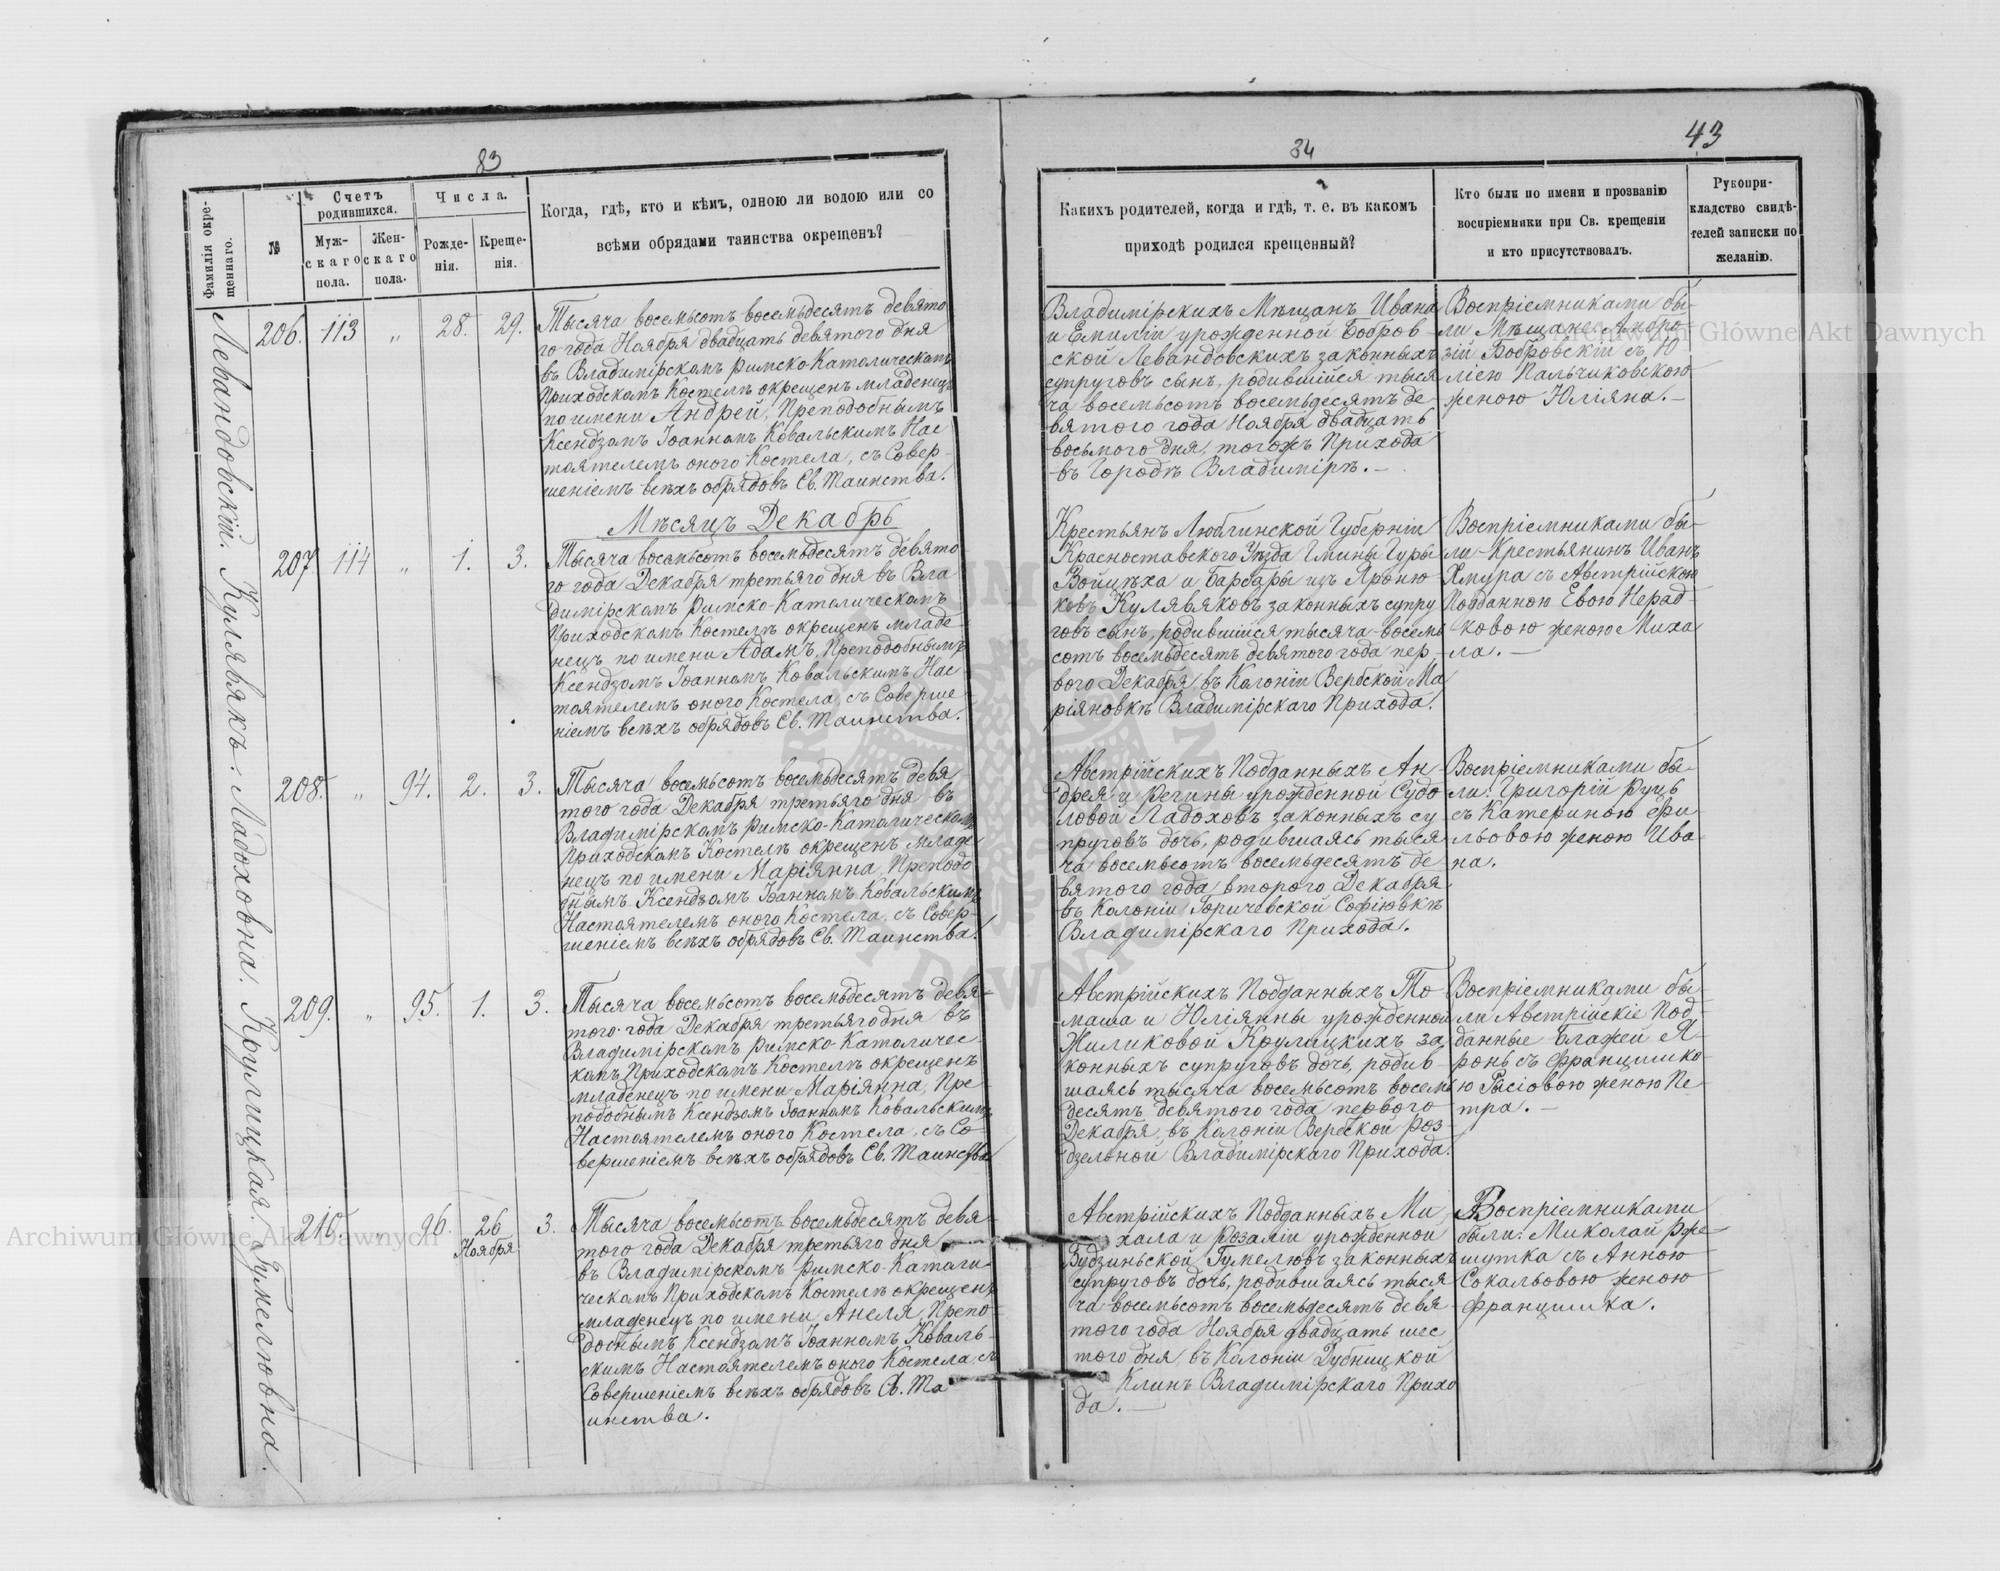 83
Фамилія окре-
щеннаго.
№
Счетъ
родившихся.
Муж-
скаго
пола.
Жен-
скаго
пола.
Числа.
Рожде-
нія.
Креще-
нія.
Когда, гдѣ, кто и кѣмъ, одною ли водою или со
всѣми обрядами таинства окрещенъ?
Левандовскій. Кулявякъ. Ладоховна. Крулицкая. Гумелювна.
206. 113 „ 28. 29.
Тысяча восемьсотъ восемьдесятъ девято
го года Ноября двадцать девятого дня
въ Владимірскомъ Римско-Католическомъ
Приходскомъ Костелѣ окрещенъ младенецъ
по имени Андрей, Преподобнымъ
Ксендзомъ Іоанномъ Ковальскимъ Нас
тоятелемъ оного Костела, съ Совер-
шеніемъ всѣхъ обрядовъ Св. Таинства.
Мѣсяцъ Декабрь
207 114 „ 1. 3.
Тысяча восемьсотъ восемьдесятъ девято
го года Декабря третьяго дня въ Вла
димірскомъ Римско-Католическомъ
Приходскомъ Костелѣ окрещенъ младе
нецъ по имени Адамъ, Преподобнымъ
Ксендзомъ Іоанномъ Ковальскимъ Нас
тоятелемъ оного Костела, съ Соверше
ніемъ всѣхъ обрядовъ Св. Таинства.
208. „ 94. 2. 3.
Тысяча восемьсотъ восемьдесятъ девя
того года Декабря третьяго дня въ
Владимірскомъ Римско-Католическомъ
Приходскомъ Костелѣ окрещенъ младе
нецъ по имени Маріянна, Преподо
бнымъ Ксендзомъ Іоанномъ Ковальскимъ
Настоятелемъ оного Костела, съ Совер-
шеніемъ всѣхъ обрядовъ Св. Таинства.
209. „ 95. 1. 3.
Тысяча восемьсотъ восемьдесятъ девя-
того года Декабря третьяго дня въ
Владимірскомъ Римско-Католичес-
комъ Приходскомъ Костелѣ окрещенъ
младенецъ по имени Маріянна, Пре-
подобнымъ Ксендзомъ Іоанномъ Ковальскимъ
Настоятелемъ оного Костела, съ Со-
вершеніемъ всѣхъ обрядовъ Св. Таинства
210. „ 96. 26 Ноября 3.
Тысяча восемьсотъ восемьдесятъ девя-
того года Декабря третьяго дня
въ Владимірскомъ Римско-Катали-
ческомъ Приходскомъ Костелѣ окрещенъ
младенецъ по имени Анеля, Препо-
добнымъ Ксендзомъ Іоанномъ Коваль-
скимъ Настоятелемъ оного Костела, съ
Совершеніемъ всѣхъ обрядовъ Св. Та
инства.
84
43
Какихъ родителей, когда и гдѣ, т. е. въ какомъ
приходѣ родился крещенный?
Кто были по имени и прозванію
воспріемники при Св. крещеніи
и кто присутствовалъ.
Рукопри-
кладство свидѣ-
телей записки по
желанію.
Владимірскихъ Мѣщанъ Ивана
и Емиліи урожденной Бобров-
ской Левандовскихъ законныхъ
супруговъ сынъ, родившійся тыся
ча восемьсотъ восемьдесятъ де-
вятого года Ноября двадцать
восьмого дня, тогожъ Прихода
въ Городѣ Владимірѣ.
Воспріемниками бы-
ли Мѣщане: Амбро-
зій Бобровскій съ Ю
ліею Пальчиковскою
женою Юліяна.
Крестьянъ Люблинской Губерніи
Красноставского Уѣзда Гмины Гуры
Войцѣха и Барбары изъ Яроню-
ковъ Кулявяковъ законныхъ супру
говъ сынъ, родившійся тысяча восемь
сотъ восемьдесятъ девятого года пер-
вого Декабря, въ Колоніи Вербской Ма
ріяновкѣ Владимірскаго Прихода.
Воспріемниками бы-
ли Крестьянинъ Иванъ
Хмура съ Австрійскою
Подданною Евою Нерад-
ковою женою Миха
ла.
Австрійскихъ Подданныхъ Ан-
дрея и Регины урожденной Судо
ловой Ладоховъ законныхъ су
пруговъ дочь, родившаясь тыся
ча восемьсотъ восемьдесятъ де-
вятого года второго Декабря
въ Колоніи Горичевской Софіювкѣ
Владимірскаго Прихода.
Воспріемниками бы-
ли: Григорій Руцъ
съ Катериною Фи
льовою женою Ива
на.
Австрійскихъ Подданныхъ То
маша и Юліянны урожденной
Жиликовой Крулицкихъ за
конныхъ супруговъ дочь, родив-
шаясь тысяча восемьсотъ восемь
десятъ девятого года первого
Декабря, въ Колоніи Верѣской Роз-
дзелоной Владимірскаго Прихода.
Воспріемниками бы-
ли Австрійскіе Под-
данные Блажей Я
ронь съ Францишко-
ю Рысіовою женою Пе-
тра.
Австрійскихъ Подданныхъ Ми
хала и Розаліи урожденной
Будзиньской Гумелювъ законныхъ
супруговъ дочь, родившаясь тыся
ча восемьсотъ восемьдесятъ девя
того года Ноября двадцать шес
того дня, въ Колоніи Дубницкой
Клинъ Владимірскаго Прихо
да.
Воспріемниками
были: Миколай Рже-
шутка съ Анною
Сокальовою женою
Францишка.
Archiwum Główne Akt Dawnych
Archiwum Główne Akt Dawnych